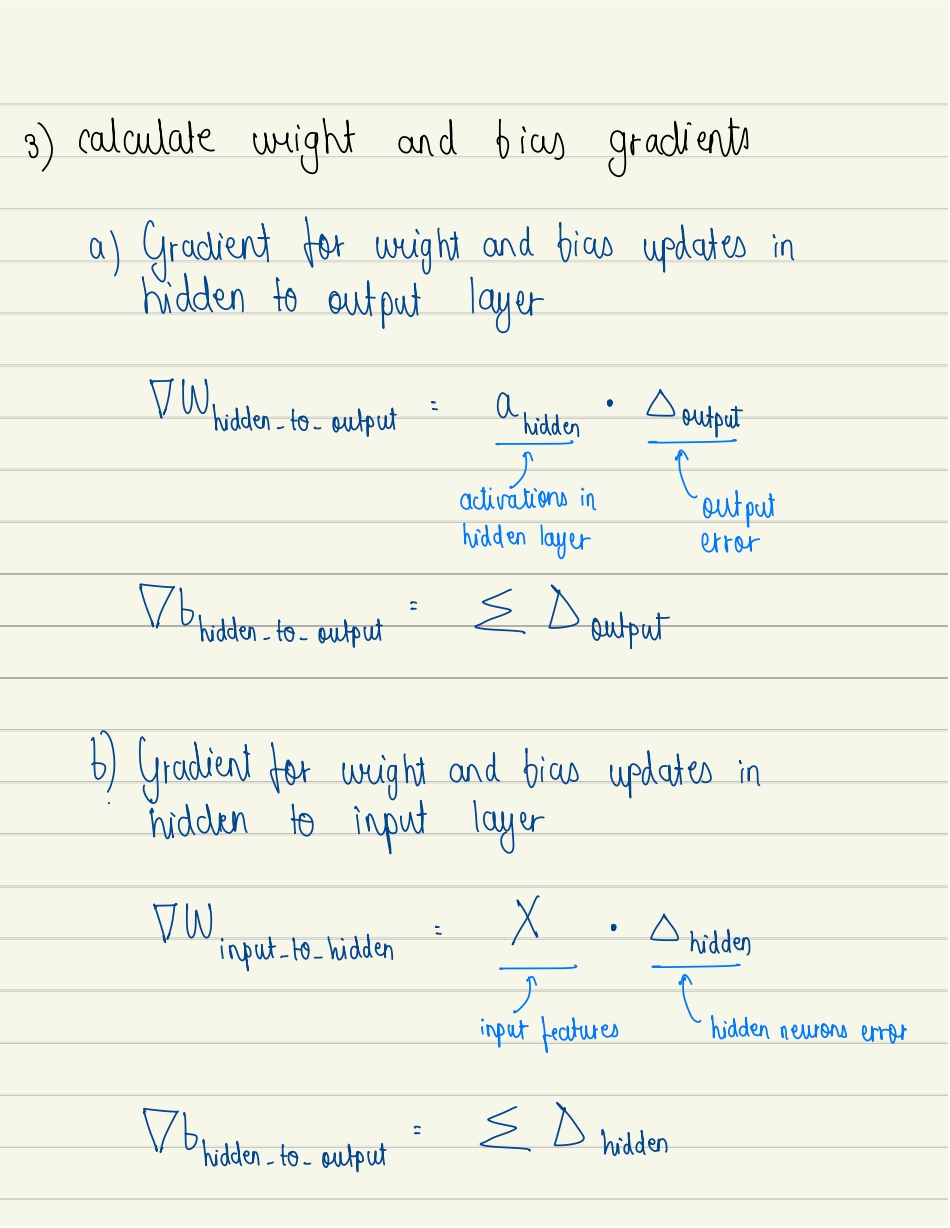 3) calculate weight and bias gradients
a) Gradient for weight and bias updates in
hidden to output layer
∇W hidden_to_output = a hidden · Δ output
activations in
hidden layer
output
error
∇b hidden_to_output = Σ Δ output
b) Gradient for weight and bias updates in
hidden to input layer
∇W input_to_hidden = X · Δ hidden
input features
hidden neurons error
∇b hidden_to_output = Σ Δ hidden